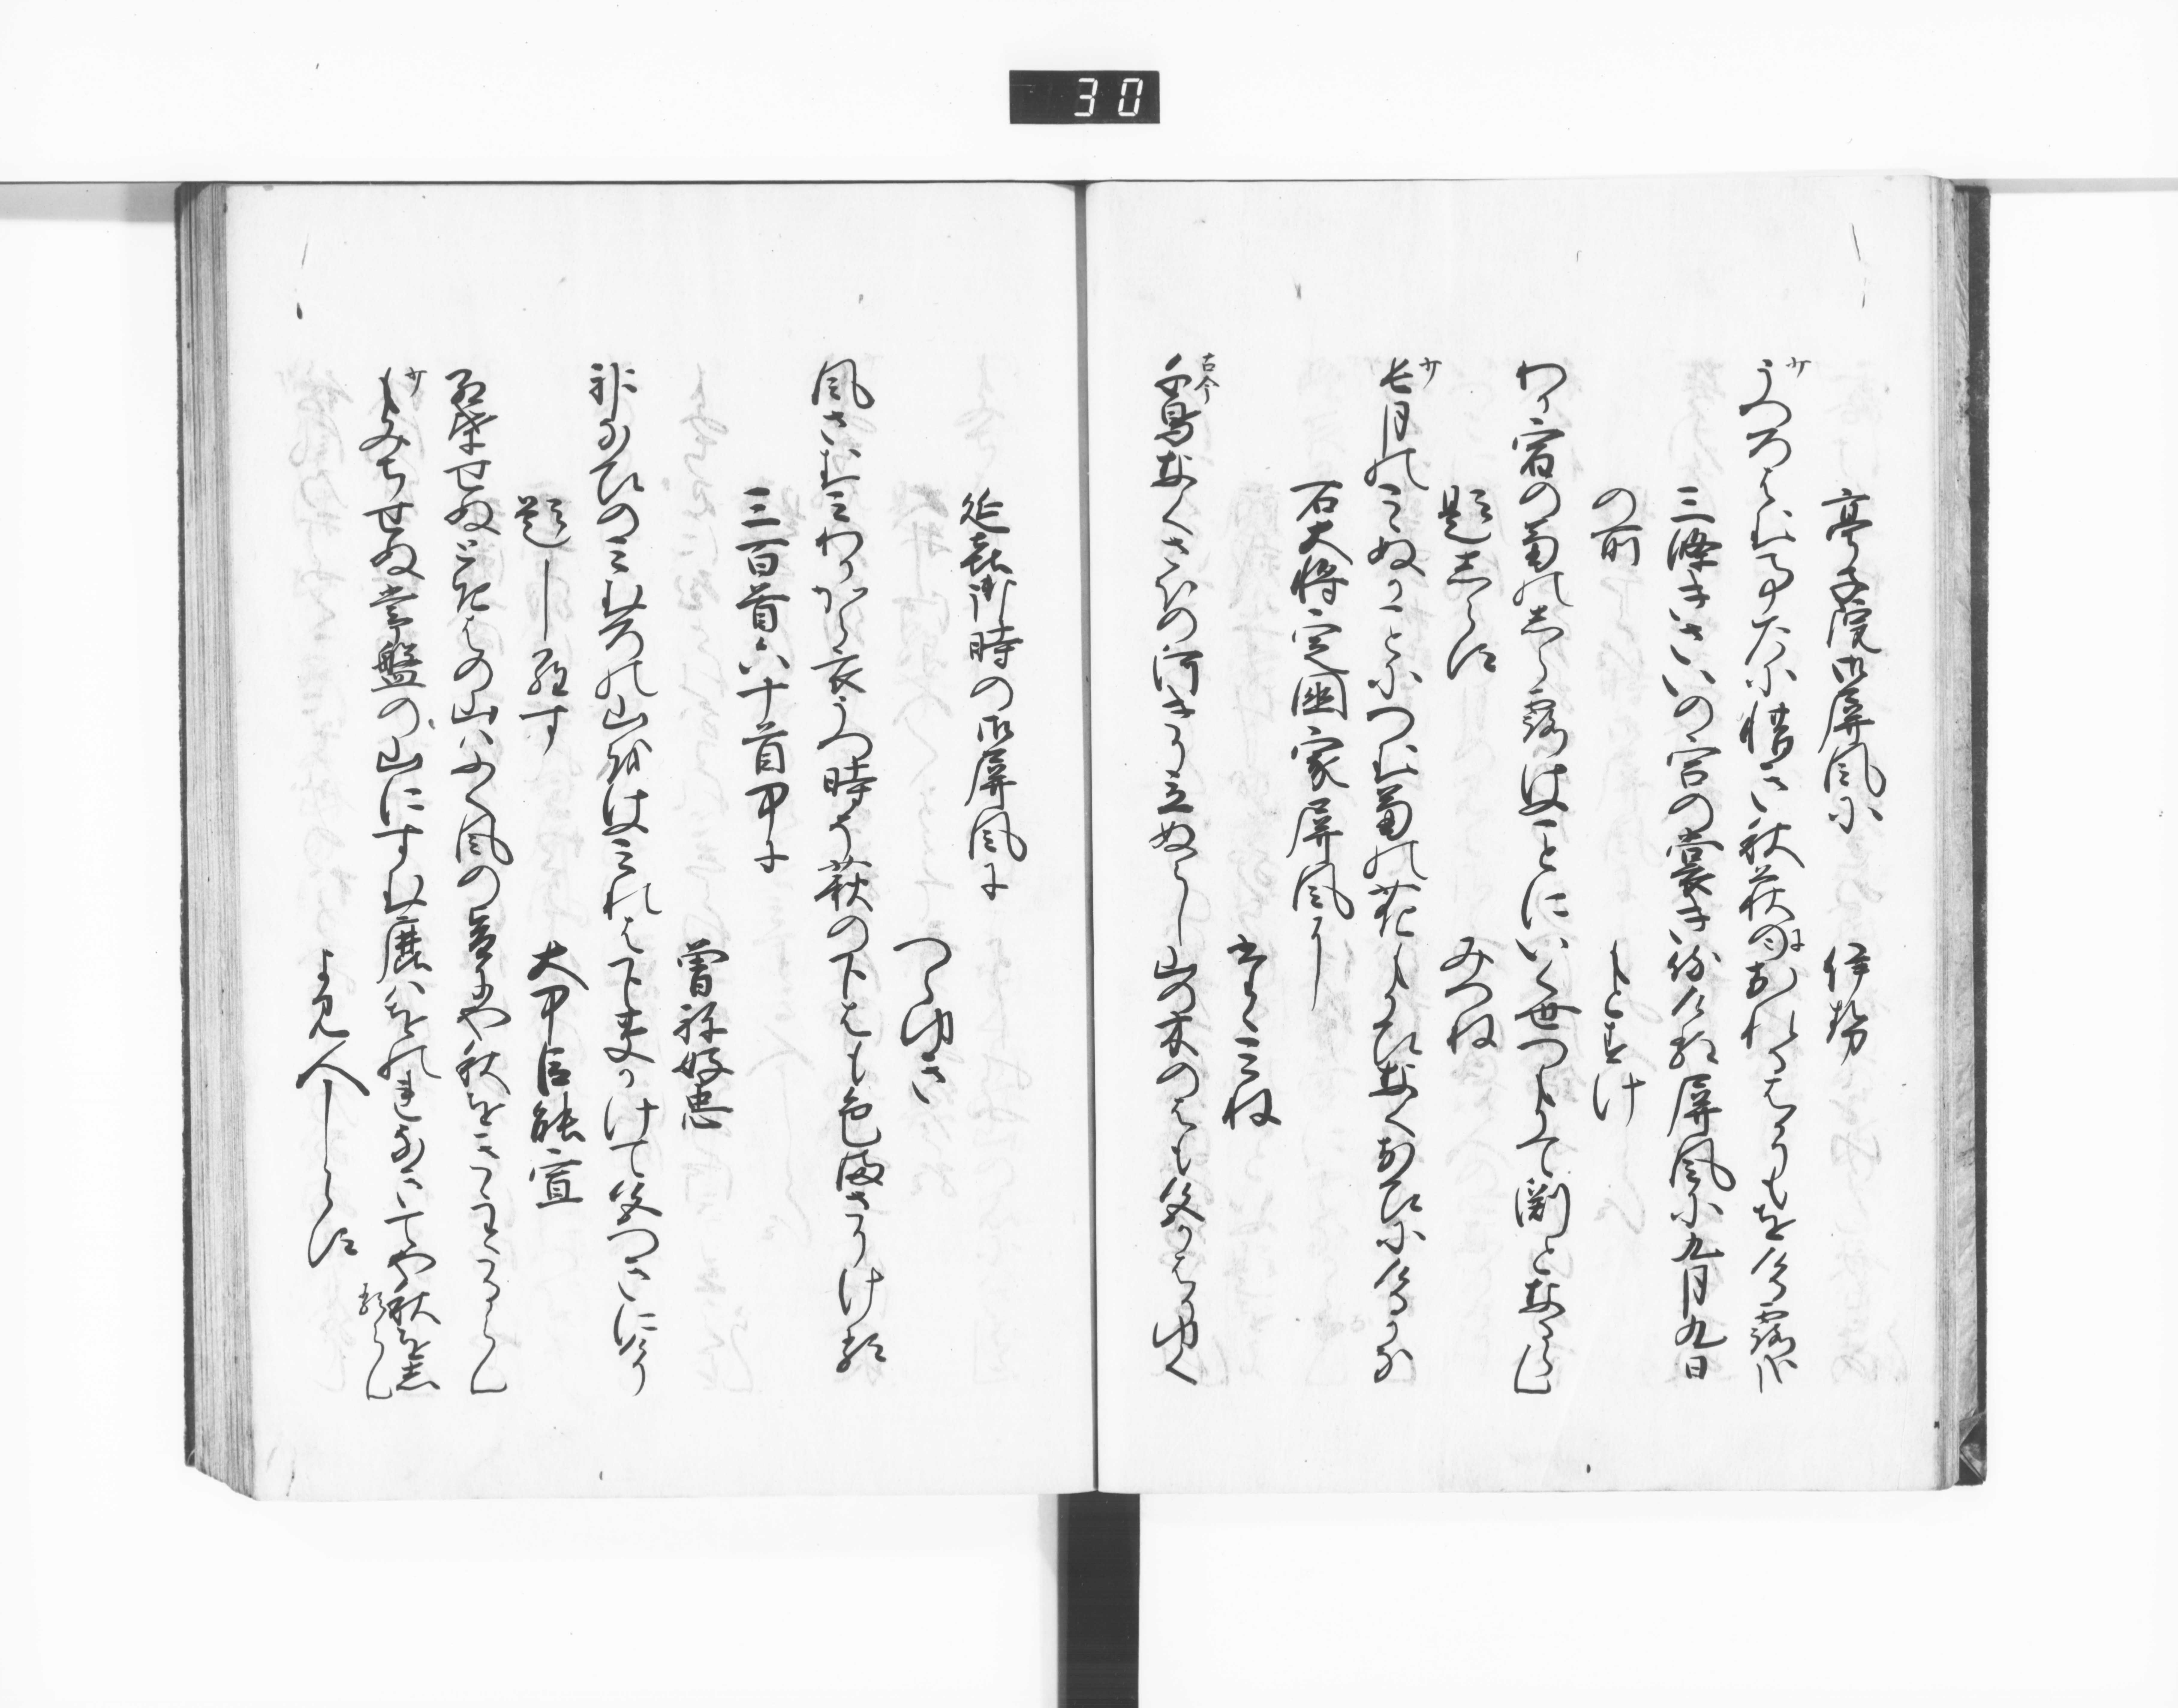 30
亭子院御屏風に　伊勢
サ
うつろはむ事たに惜き秋萩のにおれぬはかりもをける露哉
三條きさいの宮の裳き侍ける屏風に九月九日
の所　もとすけ
わか宿の菊のしら露けふことにいく世つもりて渕となるらん
題しらす　みつね
サ
長月のこゝぬかことにつむ菊の花もかひなくおひにけるかな
右大将定国家屏風に
たゝみね
古今
千鳥なくさほの河きり立ぬらし山の木のはも色かはりゆく
延喜御時の御屏風に
つらゆき
風さむみわかから衣うつ時そ萩の下はも色まさりける
三百首六十首中に
曽祢好忠
神なひのみむろの山をけふみれは下草かけて色つきにけり
題しらす　大中臣能宣
紅葉せぬときはの山はふく風の音にや秋をきゝわたるらん
サ
もみちせぬ常盤の山にすむ鹿はをのれなきてや秋をしるらん
よみ人しらす